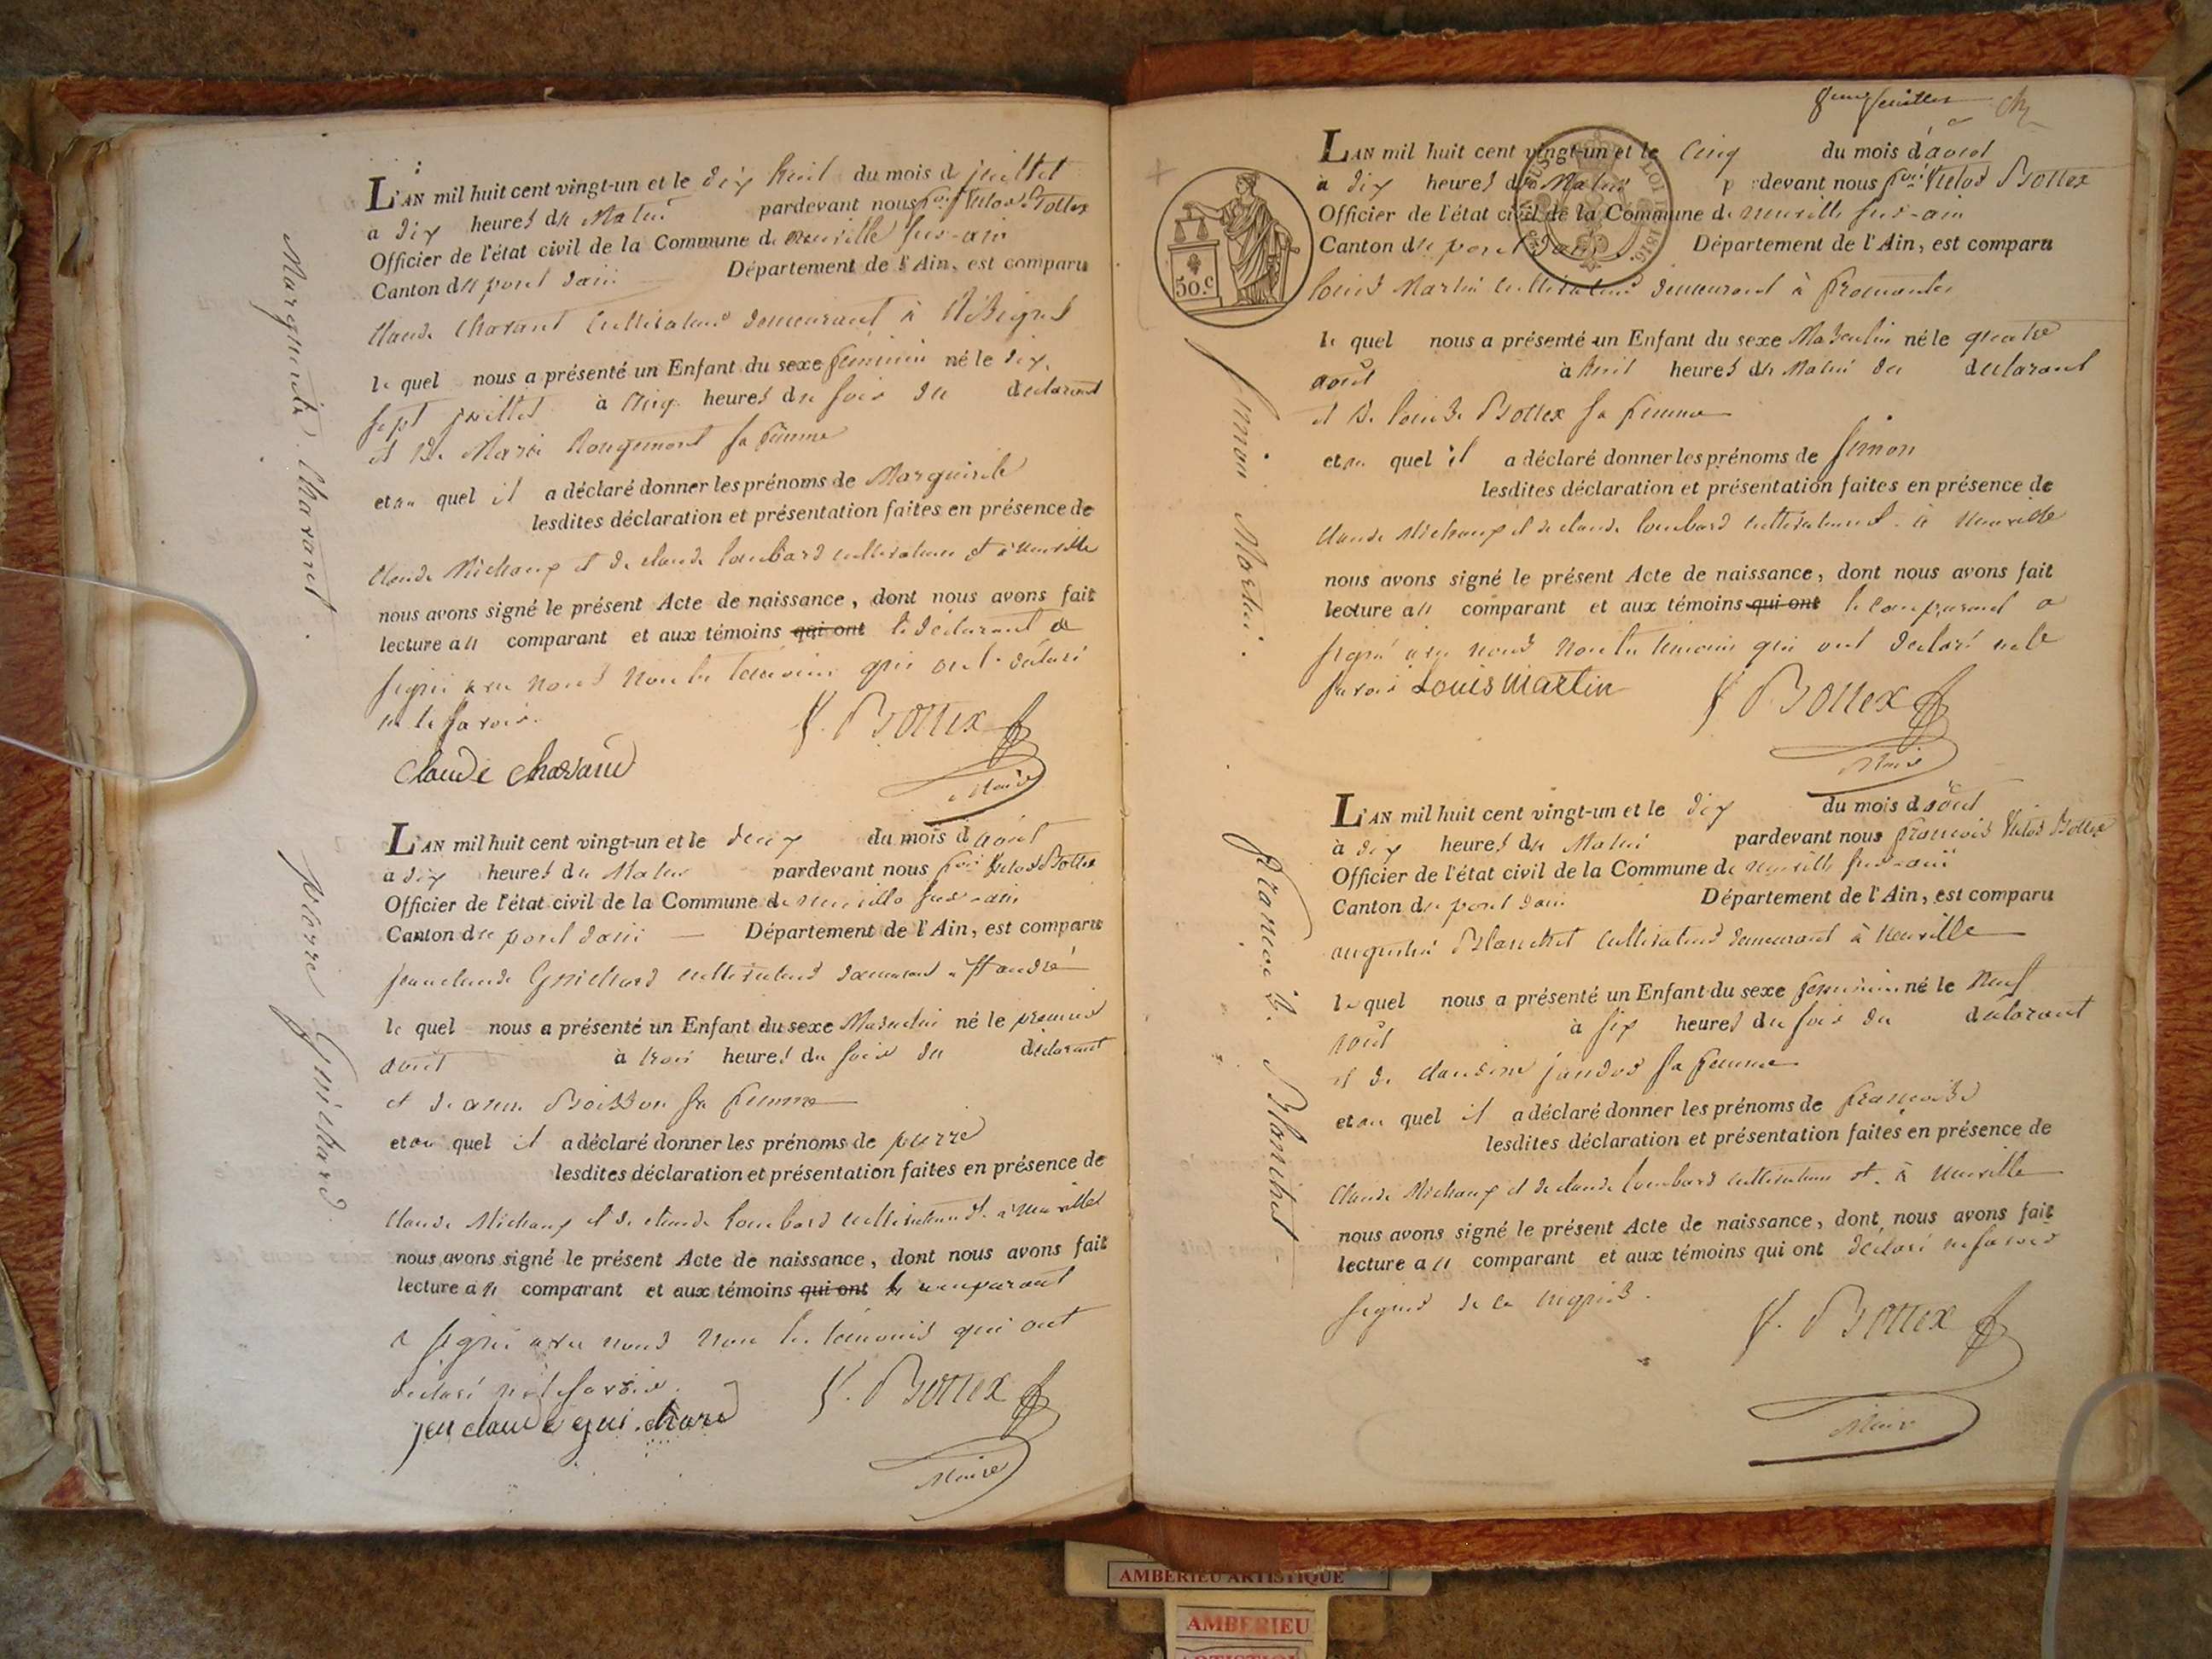 L'AN mil huit cent vingt-un et le dix huit du mois de juillet
a dix heures du Matin pardevant nous fois Victor Bottex
Officier de l'état civil de la Commune de neuville sur-ain
Canton du pont dain Département de l'Ain, est comparu
Claude Charant Cultivateur demeurant à
le quel nous a présenté un Enfant du sexe feminin né le dix
sept juillet à cinq heures du soir du declarant
et de Marie Rougemont sa femme
et au quel il a déclaré donner les prénoms de Marguerite
lesdites déclaration et présentation faites en présence de
Claude Michaux et de claude Lombard cultivateurs dt à neuville
nous avons signé le présent Acte de naissance, dont nous avons fait
lecture au comparant et aux témoins qui ont le declarant a
signé avec nous non les témoins qui ont déclaré
ne le savoir.
V. Bottex
Maire
Claude Charand
Marguerite Charant.
L'AN mil huit cent vingt-un et le deux du mois d août
a dix heures du Matin pardevant nous fois Victor Bottex
Officier de l'état civil de la Commune de neuville sur-ain
Canton du pont dain Département de l'Ain, est comparu
jean claude Guichard cultivateur demeurant a st andré
le quel nous a présenté un Enfant du sexe Masculin né le premier
août à trois heures du soir du declarant
et de anne Boisson sa femme
et au quel il a déclaré donner les prénoms de pierre
lesdites déclaration et présentation faites en présence de
Claude Michaux et de claude Lombard cultivateurs dt à neuville
nous avons signé le présent Acte de naissance, dont nous avons fait
lecture au comparant et aux témoins qui ont le comparant
a signé avec nous non les témoins qui ont
déclaré ne le savoir.
V. Bottex
Maire
jen claude gui chard
pierre Guichard
feuillet
L'AN mil huit cent vingt-un et le cinq du mois d'août
à dix heures du Matin pardevant nous fois Victor Bottex
Officier de l'état civil de la Commune de neuville sur-ain
Canton du pont dain Département de l'Ain, est comparu
50.c
LOI 1816.
louis Martin cultivateur demeurant à fromente
le quel nous a présenté un Enfant du sexe Masculin né le quatre
août à huit heures du Matin du declarant
et de louise Bottex sa femme
et au quel il a déclaré donner les prénoms de simon
lesdites déclaration et présentation faites en présence de
Claude Michaux et de claude Lombard cultivateurs dt à neuville
nous avons signé le présent Acte de naissance, dont nous avons fait
lecture au comparant et aux témoins qui ont le comparant a
signé avec nous non les temoins qui ont declaré ne le
savoir Louis martin
V Bottex
Maire
simon Martin.
L'AN mil huit cent vingt-un et le dix du mois d août
à dix heures du Matin pardevant nous francois Victor Bottex
Officier de l'état civil de la Commune de neuville sur-ain
Canton du pont dain Département de l'Ain, est comparu
augustin Blanchet cultivateur demeurant à neuville
le quel nous a présenté un Enfant du sexe feminin né le neuf
août à six heures du soir du declarant
et de claudine jandos sa femme
et au quel il a déclaré donner les prénoms de françoise
lesdites déclaration et présentation faites en présence de
Claude Michaux et de claude Lombard cultivateurs dt à neuville
nous avons signé le présent Acte de naissance, dont nous avons fait
lecture au comparant et aux témoins qui ont déclaré ne savoir
signer de ce enquis.
V. Bottex
Maire
francoise Blanchet
AMBERIEU ARTISTIQUE
AMBERIEU